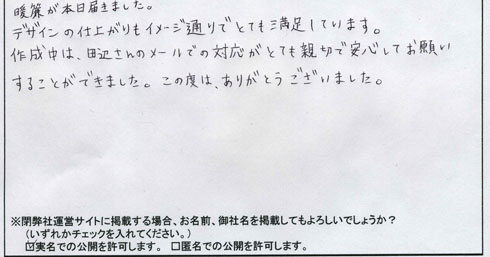 暖簾が本日届きました。
デザインの仕上がりもイメージ通りでとても満足しています。
作成中は、田辺さんのメールでの対応がとても親切で安心してお願い
することができました。この度は、ありがとうございました。
※閉弊社運営サイトに掲載する場合、お名前、御社名を掲載してもよろしいでしょうか？
(いずれかチェックを入れてください。)
☑実名での公開を許可します。 □匿名での公開を許可します。